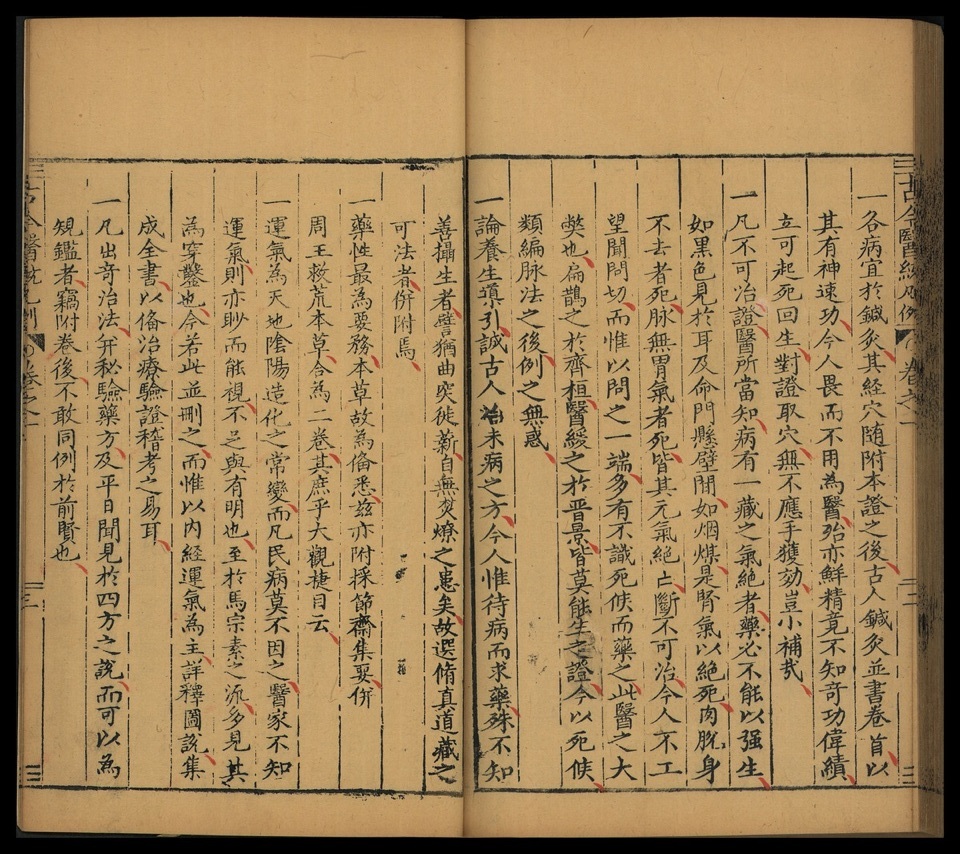 古今醫統凡例 卷之一 二
一各病宜於鍼灸其經穴随附本證之後古人鍼灸並書卷首以
其有神速功今人畏而不用為醫殆亦鮮精竟不知竒功偉績
立可起死回生對證取穴無不應手獲効豈小補㦲
一凡不可冶證醫所當知病有一藏之氣絶者藥必不能以强生
如黒色見於耳及命門懸壁間如烟煤是腎氣以絶死肉脫身
不去者死脉無胃氣者死皆其元氣絶亡斷不可治今人不工
望聞問切而惟以問之一端多有不識死候而藥之此醫之大
弊也扁鵲之於齊桓醫緩之於晋景皆莫能生之證今以死候
類編脉法之後例之無惑
一論養生導引誠古人治未病之方今人惟待病而求藥殊不知
善攝生者譬猶曲突徙薪自無焚燎之患矣故選脩真道藏之
可法者併附焉
一藥性最為要務本草故為備悉兹亦附採節齋集要併
周王救荒本草合為二卷其庶乎大觀捷目云
一運氣為天地隂陽造化之常變而凡民病莫不因之醫家不知
運氣則亦眇而能視不足與有明也至於馬宗素之流多見其
為穿鑿也今若此並刪之而惟以内經運氣為主詳釋圖說集
成全書以俻治療驗證稽考之易耳
一凡出竒治法并秘驗藥方及平日聞見於四方之說而可以為
規鑑者竊附卷後不敢同例於前賢也
古今醫統凡例 卷之一 三